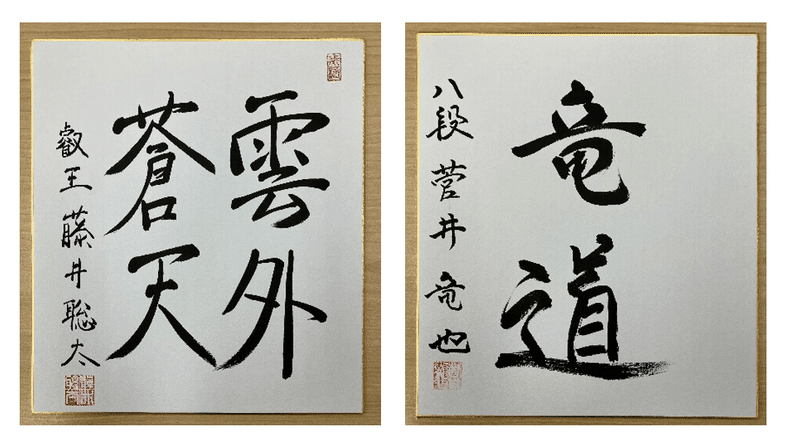 雲外
蒼天
叡王 藤井聡太
竜道
八段 菅井竜也